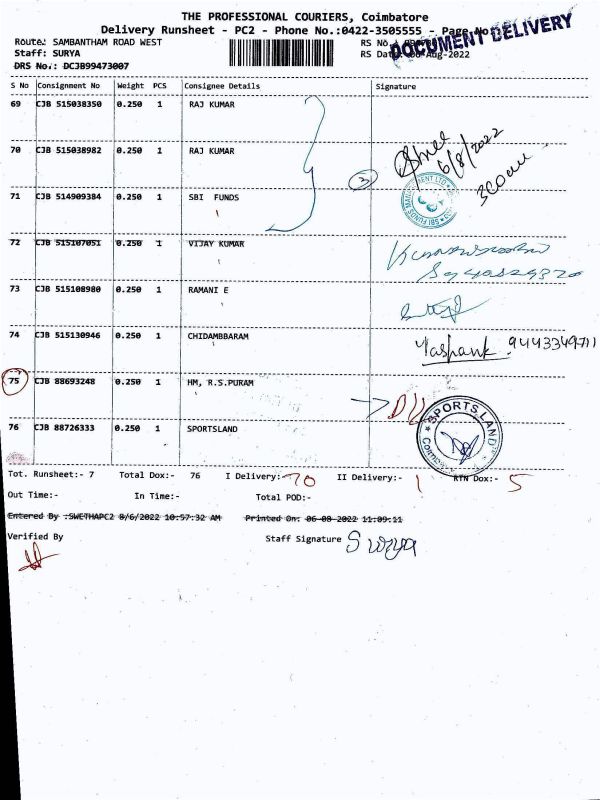 THE PROFESSIONAL COURIERS, Coimbatore
Delivery Runsheet - PC2 - Phone No.:0422-3505555 - Page No
DOCUMENT DELIVERY
Route: SAMBANTHAM ROAD WEST RS No.
Staff: SURYA RS Dat Aug-2022
DRS No.: DCJB99473007
S No Consignment No Weight PCS Consignee Details Signature
69 CJB 515038350 0.250 1 RAJ KUMAR
70 CJB 515038982 0.250 1 RAJ KUMAR
6/8/2022
3
71 CJB 514909384 0.250 1 SBI FUNDS
72 CJB 515107051 0.250 1 VIJAY KUMAR
73 CJB 515108980 0.250 1 RAMANI E
74 CJB 515130946 0.250 1 CHIDAMBBARAM
Yashank. 9443349711
75 CJB 88693248 0.250 1 HM, R.S.PURAM
76 CJB 88726333 0.250 1 SPORTSLAND
SPORTS LAND
Tot. Runsheet:- 7 Total Dox:- 76 I Delivery:- 70 II Delivery:- 1 RTN Dox:- 5
Out Time:- In Time:- Total POD:-
Entered By :SWETHAPC2 8/6/2022 10:57:32 AM Printed On: 06-08-2022 11:09:11
Verified By Staff Signature Surya